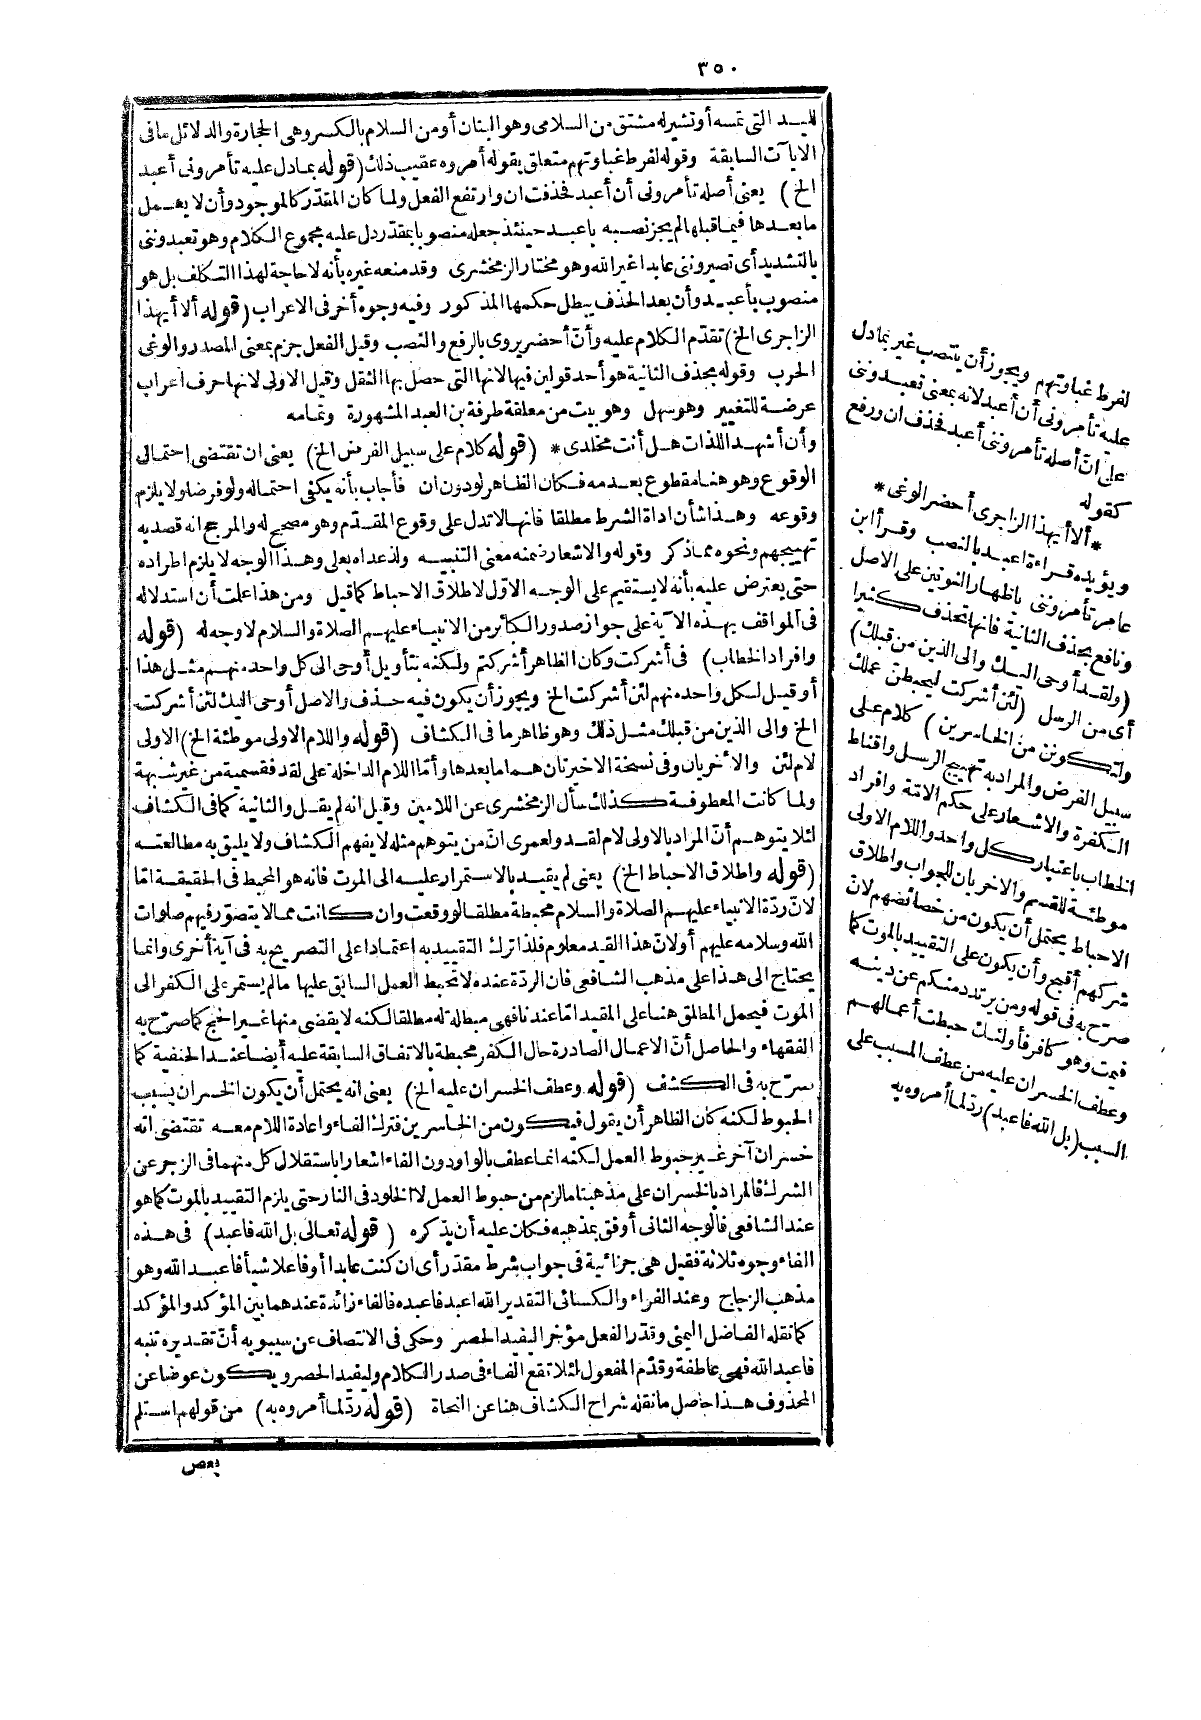 ٣٥٠
لليد التى تمسه أو تشير له مشتق من السلامى وهو البنان أو من السلام بالكسر وهى الحجارة والدلائل ما فى
الآيات السابقة وقوله لفرط غباوتهم متعلق بقوله أمروه عقيب ذلك (قوله بما دل عليه تأمرونى أعبد
الخ) يعنى أصله تأمروننى أن أعبد فحذفت ان وارتفع الفعل ولما كان المقدّر كالموجود وأن لا يعمل
ما بعدها فيما قبلها لم يجز نصبه بأعبد حينئذ جعله منصوبا بمقدّر دل عليه مجموع الكلام وهو تعبدوننى
بالتشديد أى تصيروننى عابدا غير الله وهو مختار الزمخشرى وقد منعه غيره بأنه لا حاجة لهذا التكلف بل هو
منصوب بأعبد وأن بعد الحذف يبطل حكمها المذكور وفيه وجوه أخر فى الاعراب (قوله ألا أيهذا
الزاجرى الخ) تقدّم الكلام عليه وأنّ أحضر يروى بالرفع والنصب وقيل الفعل جزم بمعنى المصدر والوغى
الحرب وقوله بحذف الثانية هو أحد قولين فيها لانها التى حصل بها الثقل وقيل الاولى لانها حرف اعراب
عرضة للتغيير وهو سهل وهو بيت من معلقة طرفة بن العبد المشهورة وتمامه
وأن أشهد اللذات هل أنت مخلدى * (قوله كلام على سبيل الفرض الخ) يعنى ان تقتضى احتمالى
الوقوع وهو هنا مقطوع بعدمه فكان الظاهر لو دون ان فأجاب بأنه يكفى احتماله ولو فرضا ولا يلزم
وقوعه وهذا شأن اداة الشرط مطلقا فانها لا تدل على وقوع المقدّم وهو مصحيح له والمرجح انه قصد به
تهييجهم ونحوه مما ذكر وقوله والاشعار ضمنه معنى التنبيه ولذا عداه بعلى وهذا الوجه لا يلزم اطراده
حتى يعترض عليه بأنه لا يستقيم على الوجه الاوّل لاطلاق الاحباط كما قيل ومن هذا علمت أن استدلاله
فى المواقف بهذه الآية على جواز صدور الكبائر من الانبياء عليهم الصلاة والسلام لا وجه له (قوله
وافراد الخطاب) فى أشركت وكان الظاهر أشركتم ولكنه بتأويل أوحى الى كل واحد منهم مثل هذا
أو قيل لكل واحد منهم لئن أشركت الخ ويجوز أن يكون فيه حذف والاصل أوحى اليك لئن أشركت
الخ والى الذين من قبلك مثل ذلك وهو ظاهر ما فى الكشاف (قوله واللام الاولى موطئة الخ) الاولى
لام لئن والاخريان وفى نسخة الاخيرتان هما ما بعدها وأمّا اللام الداخلة على لقد فقسمية من غير شبهة
ولما كانت المعطوفة كذلك سأل الزمخشرى عن اللامين وقيل انه لم يقل والثانية كما فى الكشاف
لئلا يتوهم أنّ المراد بالاولى لام لقد ولعمرى انّ من يتوهم مثله لا يفهم الكشاف ولا يليق به مطالعته
(قوله واطلاق الاحباط الخ) يعنى لم يقيد بالاستمرار عليه الى الموت فانه هو المحبط فى الحقيقة امّا
لانّ ردّة الانبياء عليهم الصلاة والسلام محبطة مطلقا لو وقعت وان كانت مما لا يتصوّر فيهم صلوات
الله وسلامه عليهم أو لانّ هذا القيد معلوم فلذا ترك التقييد به اعتمادا على التصريح به فى آية أخرى وانما
يحتاج الى هذا على مذهب الشافعى فان الردّة عنده لا تحبط العمل السابق عليها ما لم يستمر على الكفر الى
الموت فيحمل المطلق هنا على المقيد امّا عندنا فهى مبطلة له مطلقا لكنه لا يقضى منها غير الحج كما صرّح به
الفقهاء والحاصل أنّ الاعمال الصادرة حال الكفر محبطة بالاتفاق السابقة عليه أيضا عند الحنفية كما
صرّح به فى الكشف (قوله وعطف الخسران عليه الخ) يعنى انه يحتمل أن يكون الخسران بسبب
الحبوط لكنه كان الظاهر أن يقول فيكون من الخاسرين فترك الفاء واعادة اللام معه تقتضى انه
خسران آخر غير حبوط العمل لكنه انما عطف بالواو دون الفاء اشعارا باستقلال كل منهما فى الزجر عن
الشرك فالمراد بالخسران على مذهبنا ما لزم من حبوط العمل لا الخلود فى النار حتى يلزم التقييد بالموت كما هو
عند الشافعى فالوجه الثانى أوفق بمذهبه فكان عليه أن يذكره (قوله تعالى بل الله فاعبد) فى هذه
الفاء وجوه ثلاثة فقيل هى جزائية فى جواب شرط مقدّر أى ان كنت عابدا أو فاعلا شيأ فاعبد الله وهو
مذهب الزجاج وعند الفراء والكسائى التقدير الله اعبد فاعبده فالفاء زائدة عندهما بين المؤكد والمؤكد
كما نقله الفاضل اليمنى وقدّر الفعل مؤخرا ليفيد الحصر وحكى فى الانتصاف عن سيبويه أنّ تقديره تنبه
فاعبد الله فهى عاطفة وقدّم المفعول لئلا تقع الفاء فى صدر الكلام وليفيد الحصر ويكون عوضا عن
المحذوف هذا حاصل ما نقله شراح الكشاف هنا عن النحاة (قوله ردّ لما أمروه به) من قولهم استلم
بعض
لفرط غباوتهم ويجوز أن ينتصب غير بما دل
عليه تأمرونى أن أعبد لانه بمعنى تعبدوننى
على انّ أصله تأمروننى أعبد فحذف ان ورفع
كقوله
* ألا أيهذا الزاجرى أحضر الوغى *
ويؤيده قراءة اعبد بالنصب وقرأ ابن
عامر تأمروننى باظهار النونين على الاصل
ونافع بحذف الثانية فانها تحذف كثيرا
(ولقد أوحى اليك والى الذين من قبلك)
أى من الرسل (لئن أشركت ليحبطن عملك
ولتكونن من الخاسرين) كلام على
سبيل الفرض والمراد به تهييج الرسل واقناط
الكفرة والاشعار على حكم الامّة وافراد
الخطاب باعتبار كل واحد واللام الاولى
موطئة للقسم والاخريان للجواب واطلاق
الاحباط يحتمل أن يكون من خصائصهم لانّ
شركهم أقبح وأن يكون على التقييد بالموت كما
صرّح به فى قوله ومن يرتدد منكم عن دينه
فيمت وهو كافر فأولئك حبطت أعمالهم
وعطف الخسران عليه من عطف المسبب على
السبب (بل الله فاعبد) ردّ لما أمروه به